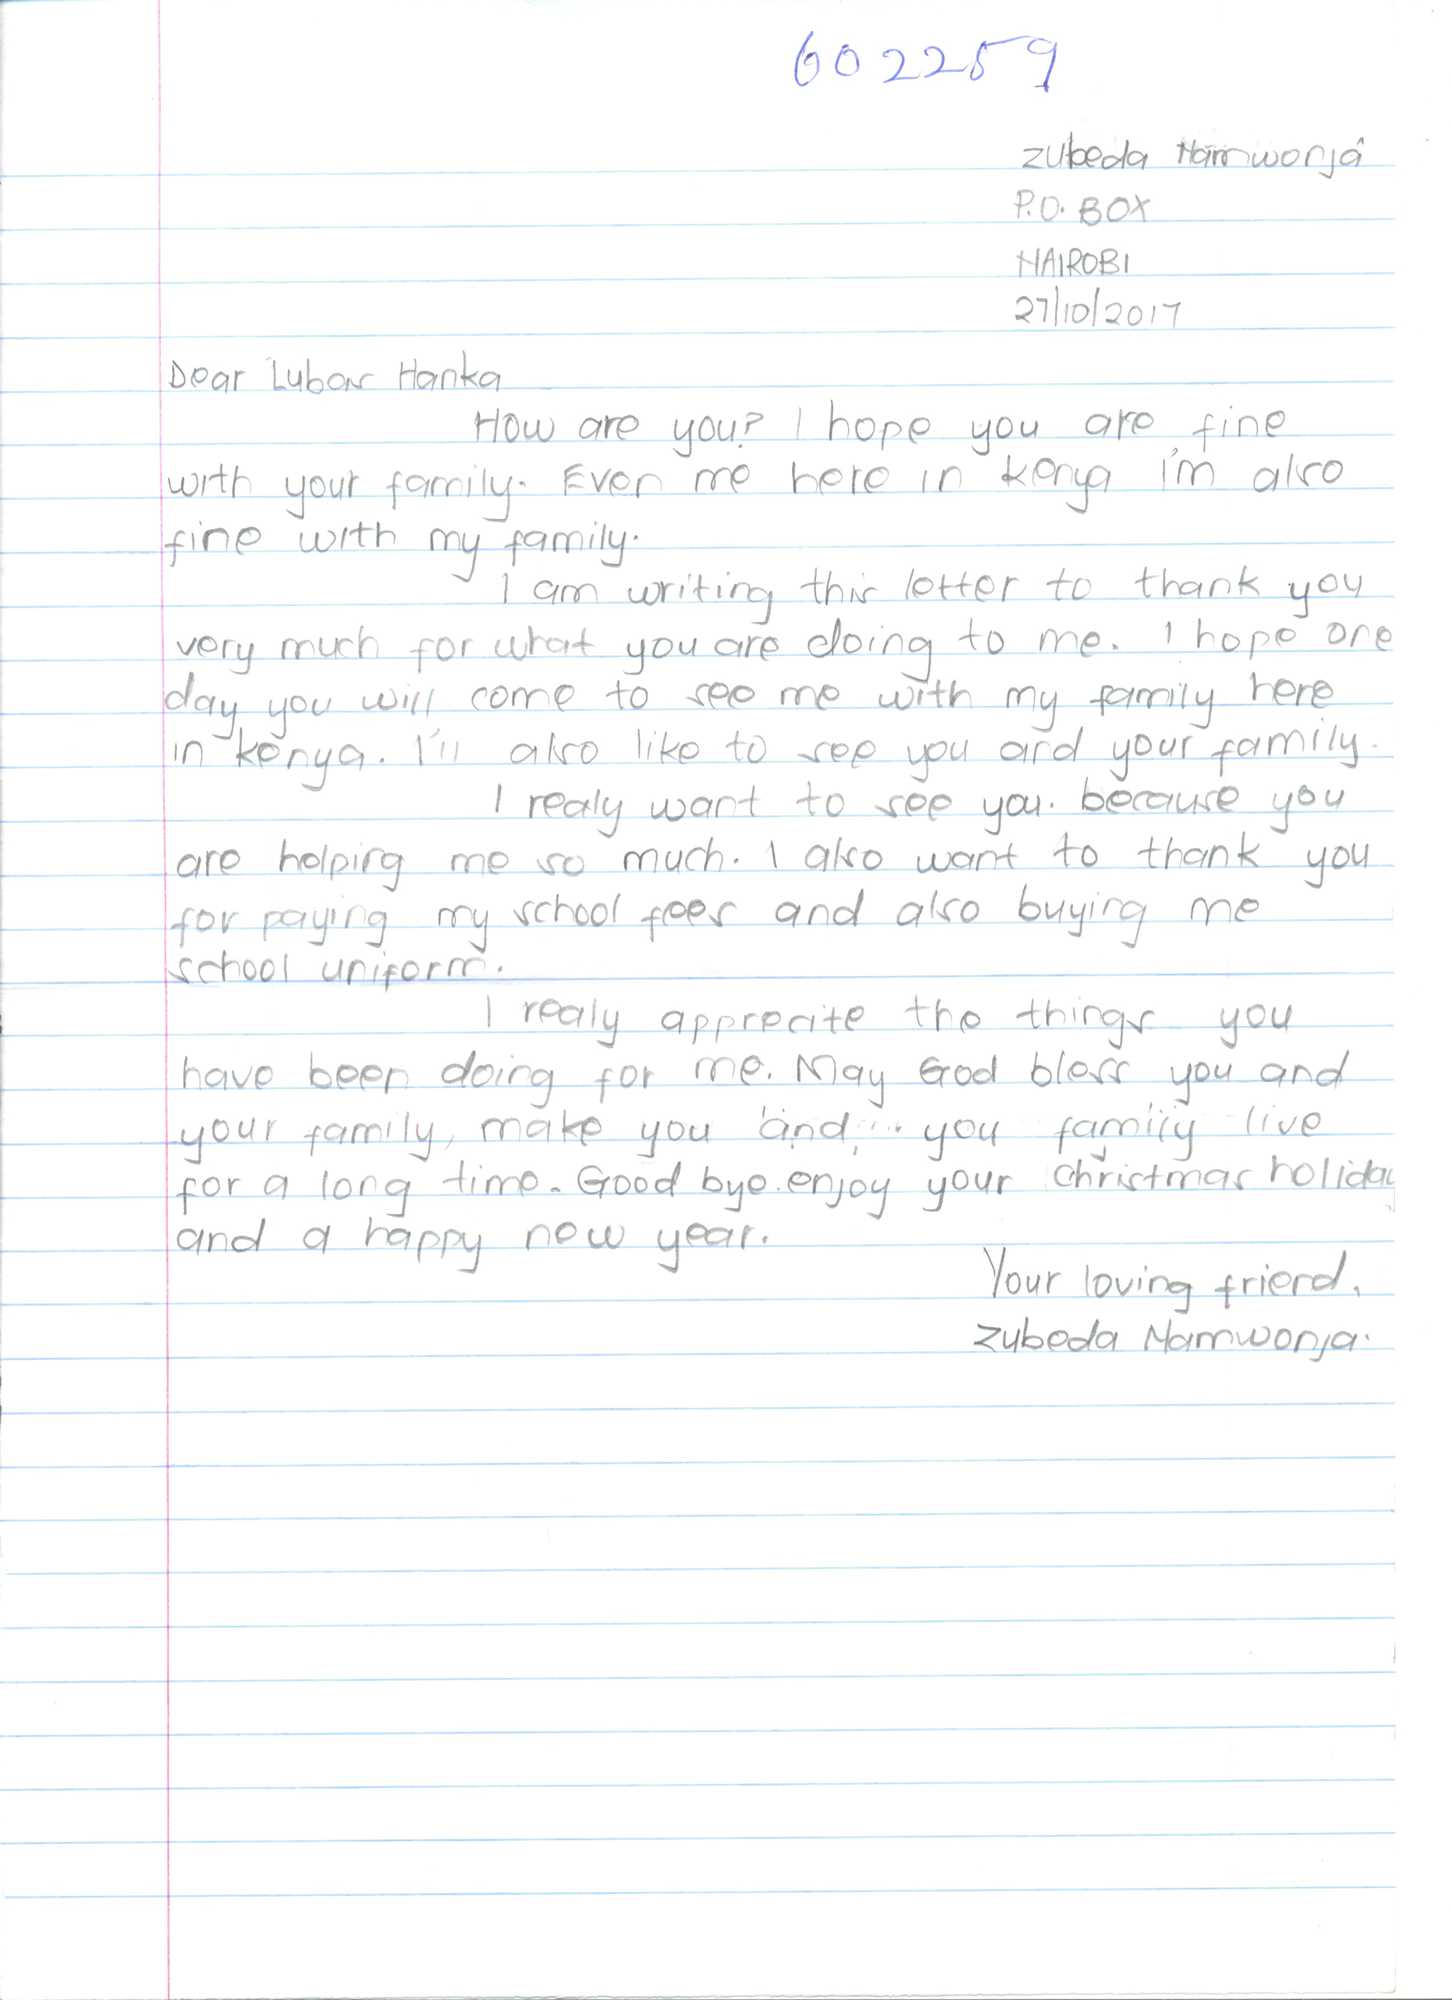 602259
Zubeda Namwonja
P.O. BOX
NAIROBI
27/10/2017
Dear Lubor Hanka
How are you? I hope you are fine
with your family. Even me here in Kenya I'm also
fine with my family.
I am writing this letter to thank you
very much for what you are doing to me. I hope one
day you will come to see me with my family here
in kenya. I'll also like to see you and your family.
I realy want to see you. because you
are helping me so much. I also want to thank you
for paying my school fees and also buying me
school uniform.
I realy apprecite the things you
have been doing for me. May God bless you and
your family, make you and you family live
for a long time. Good bye. enjoy your christmas holiday
and a happy new year.
Your loving friend,
Zubeda Namwonja.